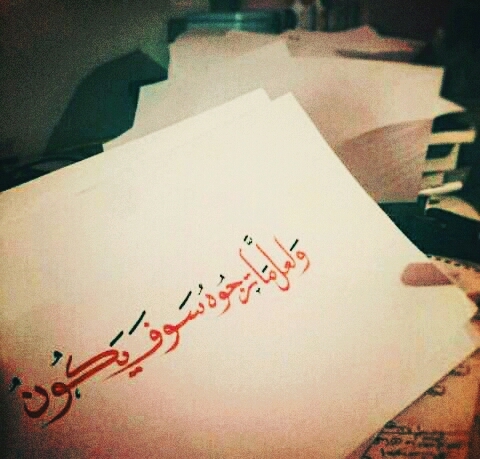 وَلعلَّ مَا تَرجُوه سَوفَ يَكُونُ